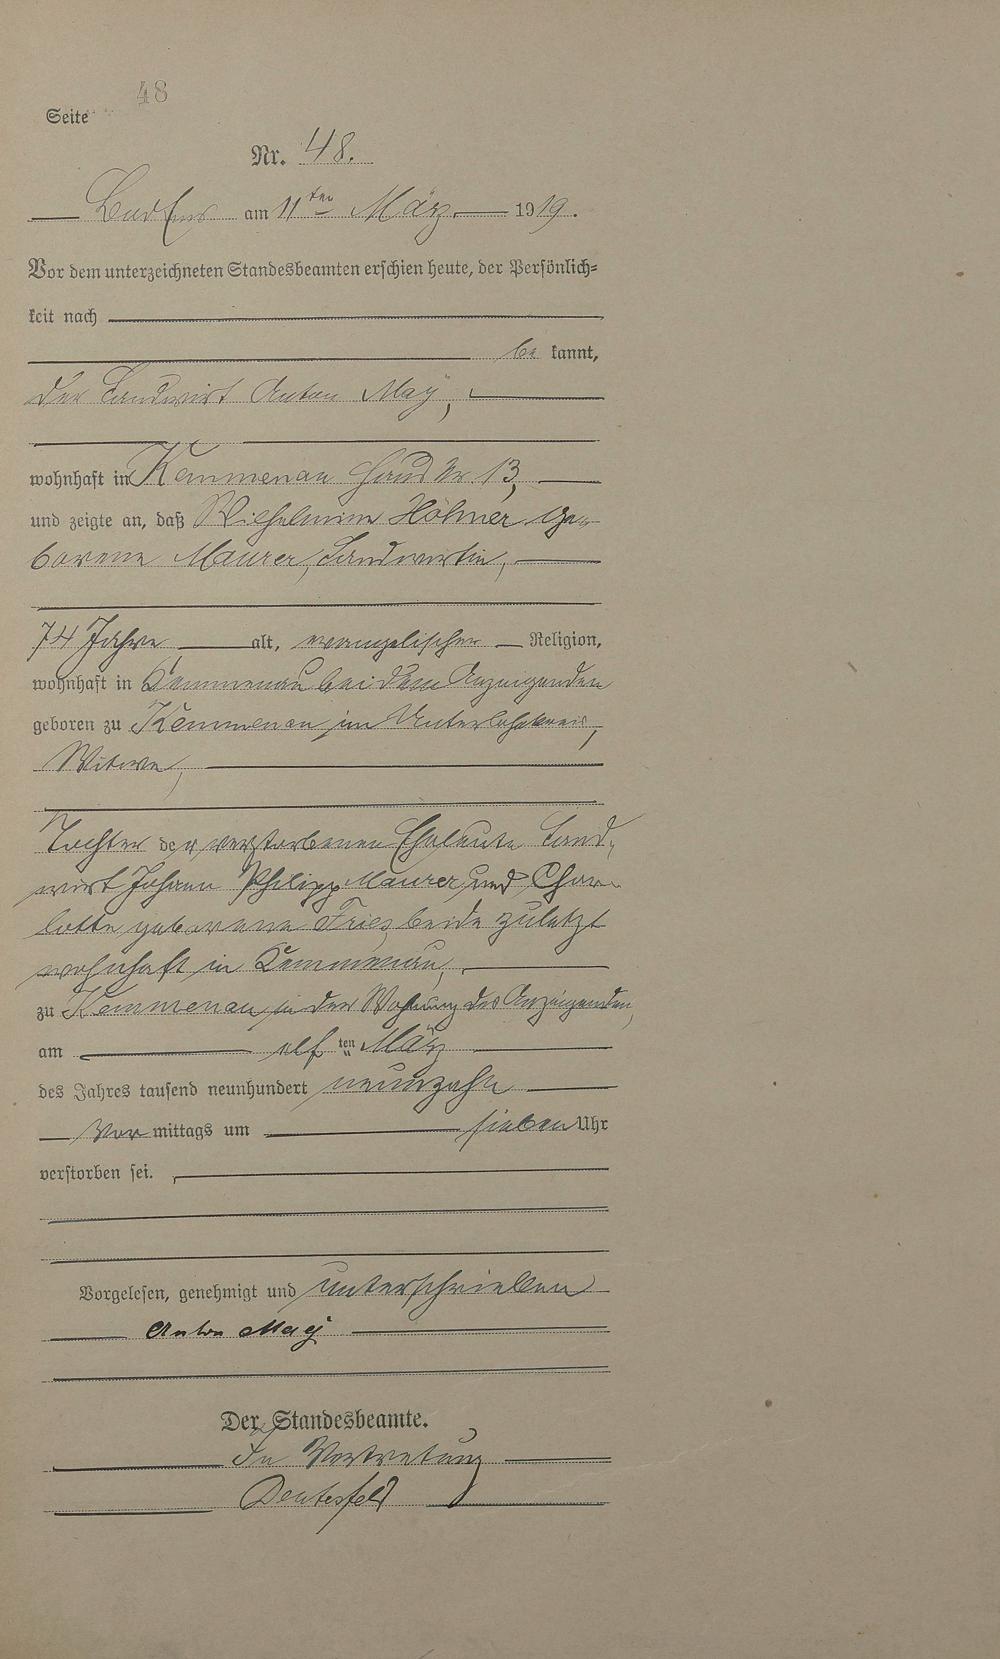 48
Seite
Nr. 48.
Bad Ems am 11ten März 1919.
Vor dem unterzeichneten Standesbeamten erschien heute, der Persönlich-
keit nach
be kannt,
der Landwirt Anton May,
wohnhaft in Kemmenau Haus Nr 13,
und zeigte an, daß Wilhelmine Höhner ge-
borene Maurer, Landwirtin,
74 Jahre alt, evangelischer Religion,
wohnhaft in Kemmenau bei dem Anzeigenden
geboren zu Kemmenau im Unterlahnkreis,
Witwe,
Tochter der verstorbenen Eheleute Land-
wirt Johann Philipp Maurer und Char-
lotte geborene Fries, beide zuletzt
wohnhaft in Kemmenau,
zu Kemmenau in der Wohnung des Anzeigenden,
am elf ten März
des Jahres tausend neunhundert neunzehn
Vor mittags um sieben Uhr
verstorben sei.
Vorgelesen, genehmigt und unterschrieben
Anton May
Der Standesbeamte.
In Vertretung